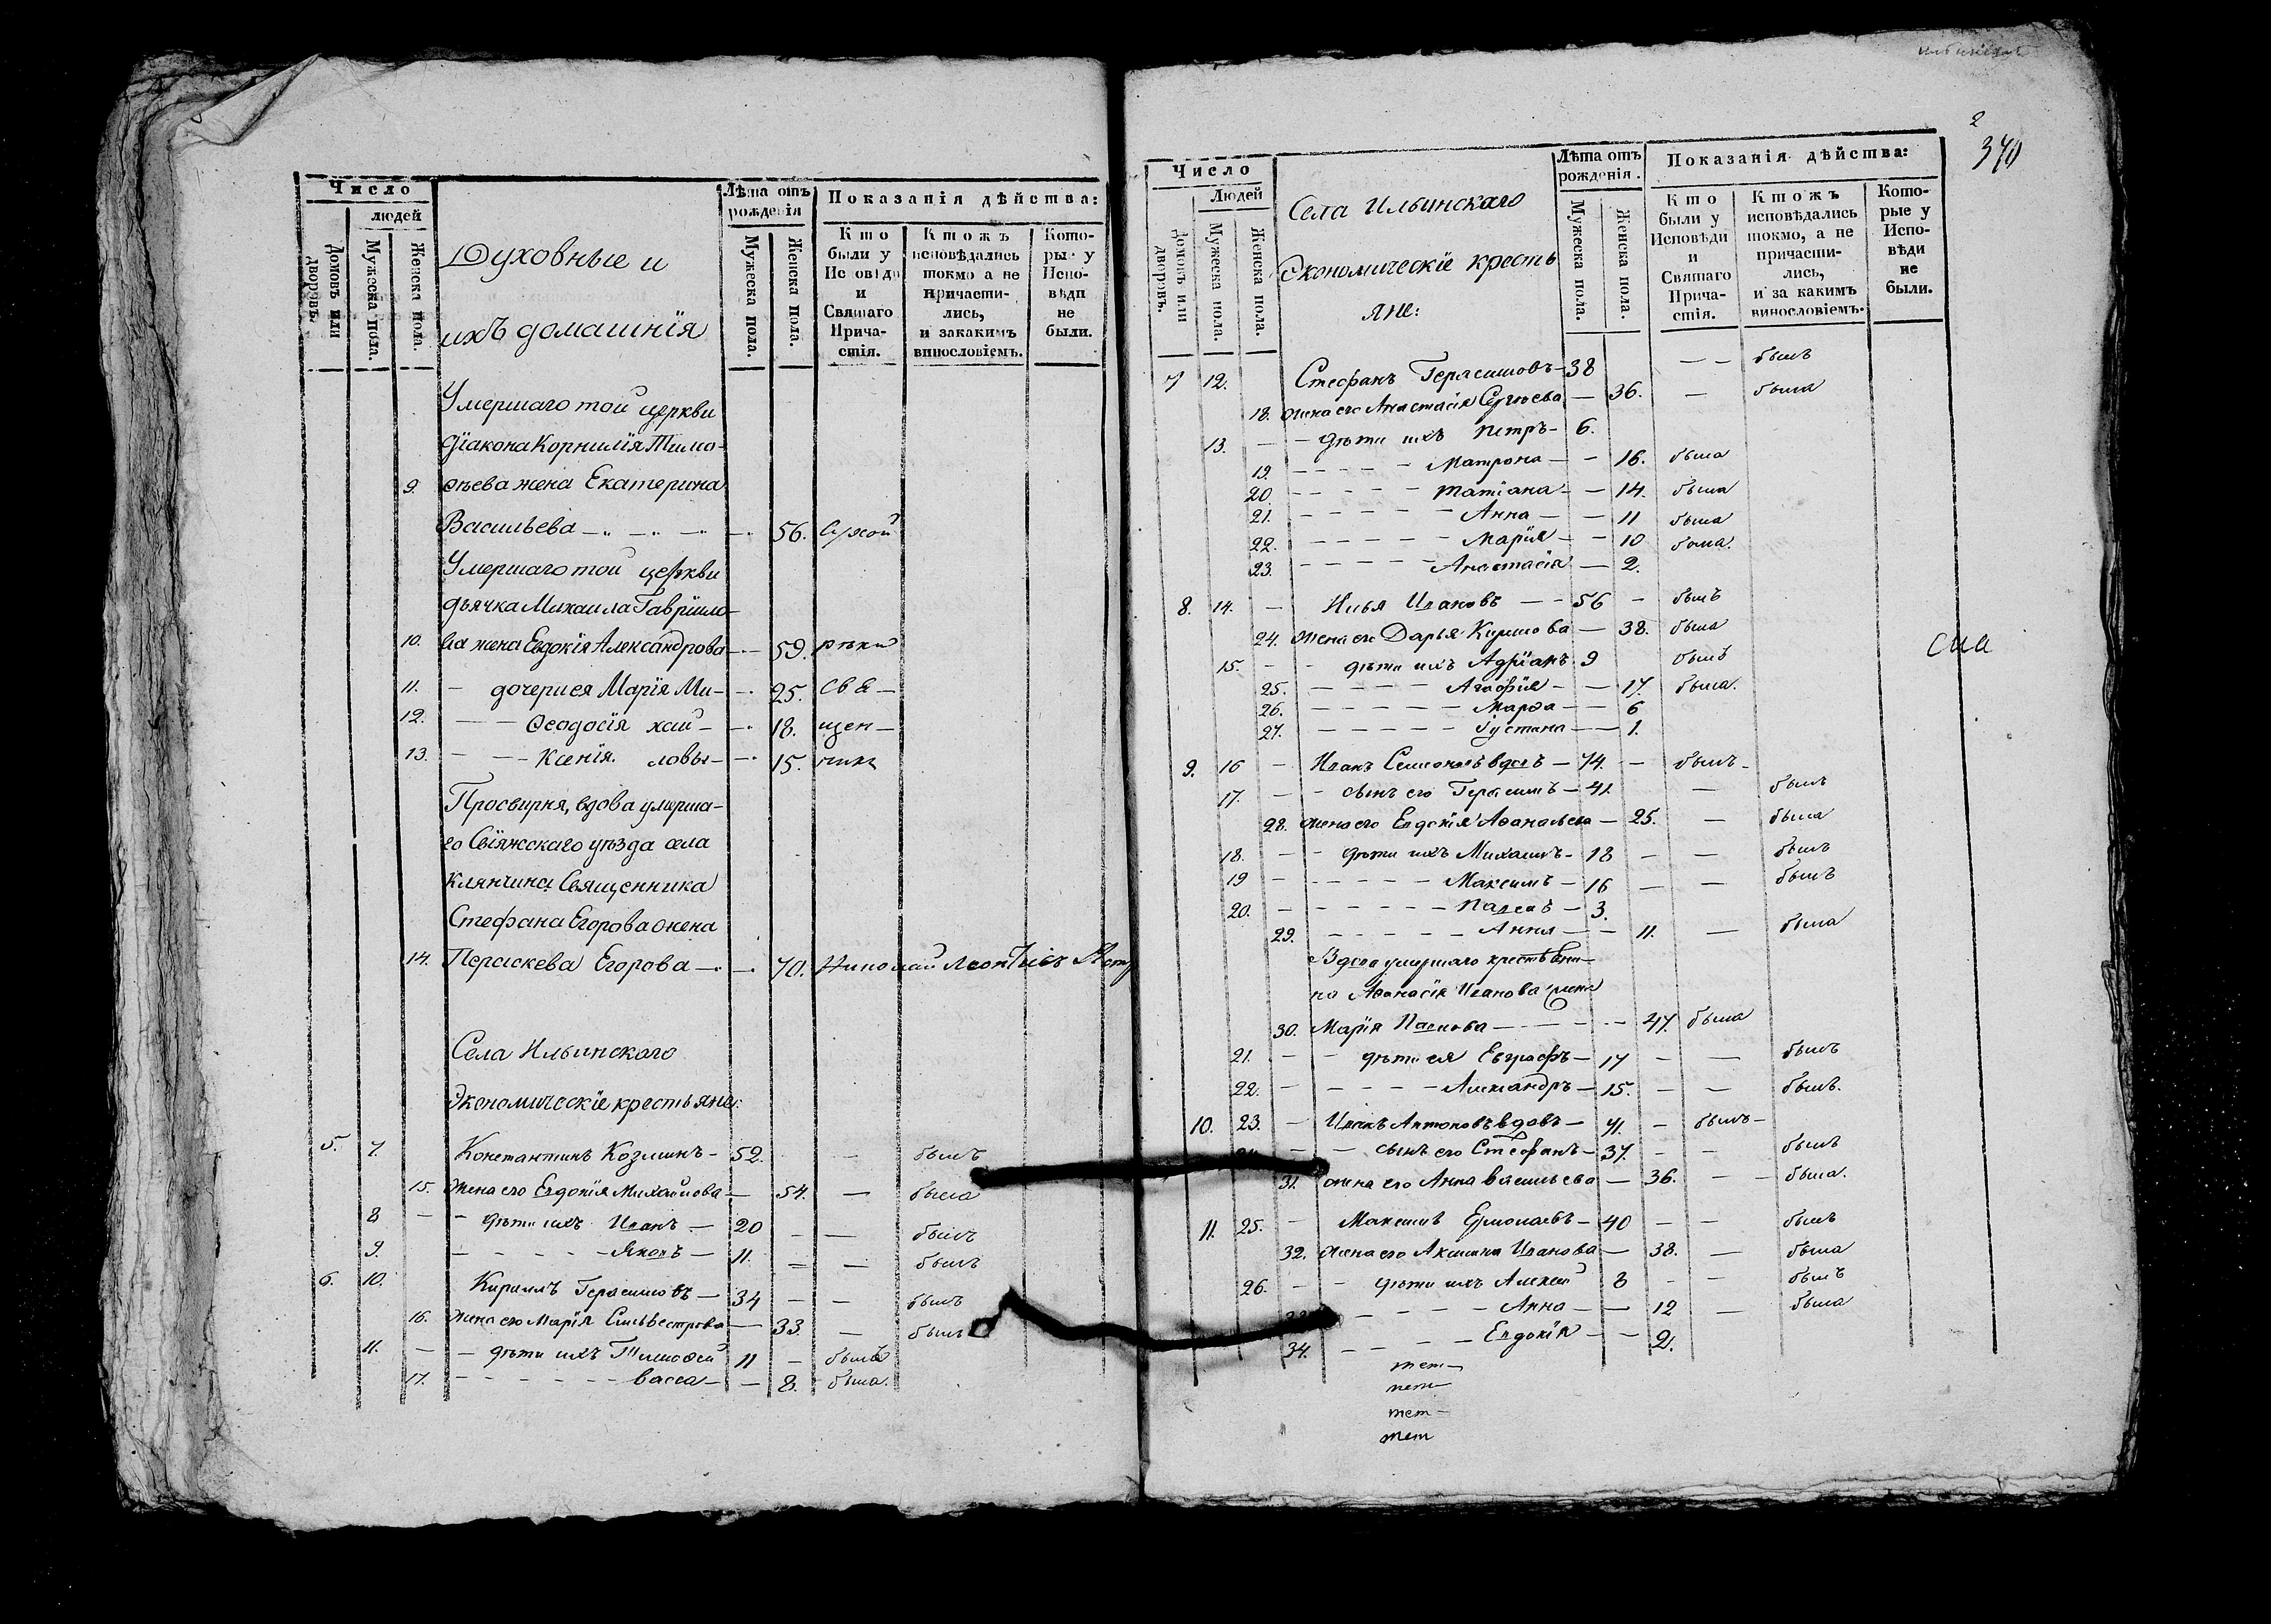 Число
людей
Домовъ или дворовъ.
Мужеска пола.
Женска пола.
Духовные и
ихъ домашнія
Лѣта отъ рожденія
Мужеска пола.
Женска пола.
Показанія дѣйства:
Кто были у Исповѣди и Святаго Причастія.
Ктожъ исповѣдались токмо а не причастились, и закакимъ винословіемъ.
Которые у Исповѣди не были.
Умершаго той церкви
діакона Корнилія Тимо-
9. ѳѣева жена Екатерина
Васильева — 56. Сухой
Умершаго той церкви
дьячка Михаила Гаврило-
10. ва жена Евдокія Александрова — 59. рѣки
11. — дочери ея Марія Ми- — 25. свя —
12. — — Ѳеодосія хай — — 18. щен —
13. — — Ксенія. ловы — — 15. никъ
Просвирня, вдова умерша-
го Свіяжскаго уѣзда села
Клянчина Священника
Стефана Егорова жена
14. Параскева Егорова — 70. Николай Леонтіевъ
Села Ильинскаго
Экономическіе крестьяне:
5. 7. Константинъ Козминъ — 52. — былъ
15. Жена его Евдокія Михайлова — 54. — была
8 — — дѣти ихъ Иванъ — 20 — — былъ
9. — — — — Яковъ — 11. — — былъ
6. 10. Кириллъ Герасимовъ — 34 — — былъ
16. Жена его Марія Сильвестрова — 33. — была
11. — — дѣти ихъ Тимоѳей 11 — былъ
17. — — — — Васса — — 8. была.
2
370
Число
Людей
Домовъ или дворовъ.
Мужеска пола.
Женска пола.
Села Ильинскаго
Экономическіе кресть
яне:
Лѣта отъ рожденія.
Мужеска пола.
Женска пола.
Показанія дѣйства:
Кто были у Исповѣди и Святаго Причастія.
Ктожъ исповѣдались токмо, а не причастились, и за какимъ винословіемъ.
Которые у Исповѣди не были.
7 12. Стефанъ Герасимовъ — 38 — — былъ
18. жена его Анастасія Сергѣева — 36. — была
13. — — дѣти ихъ Петръ — 6.
19. — — — — Матрона — — 16. была
20. — — — — Татіана — — 14. была
21. — — — — Анна — — 11 была
22. — — — — Марія — — 10 была.
23. — — — — Анастасія — 2.
8. 14. — Илья Ивановъ — — 56 — былъ
24. Жена его Дарья Кирилова — 38. была
15. — — дѣти ихъ Адріанъ 9 былъ
25. — — — — Агафія — — 17. была.
26. — — — — Марѳа — — 6
27. — — — — Іустина — — 1.
сиа
9. 16 — Иванъ Семеновъ вдовъ — 74. — былъ —
17. — — сынъ его Герасимъ — 41. — былъ
28. жена его Евдокія Аѳанасьева — 25. — была
18. — — дѣти ихъ Михаилъ — 18 — — былъ
19 — — — — Максимъ — 16 — — былъ
20. — — — — Павелъ — 3.
29. — — — — Анна — — 11. — была
Вдова умершаго крестьяни-
на Аѳанасія Иванова жена
30. Марія Павлова — — — 47. была
21. — — дѣти ея Евграфъ — 17 — — былъ
22. — — — — Александръ — 15. — — былъ.
10. 23. — Иванъ Антоновъ вдовъ — 71. — былъ —
— сынъ его Стефанъ — 37. — — былъ
31. жена его Анна Васильева — 36. — — была.
11. 25. — Максимъ Ермолаевъ — 40 — — былъ
32. Жена его Акилина Иванова — 38. — была
26. — — дѣти ихъ Алексей 8 — — былъ
— — — Анна — — 12 — была
34. — — — Евдокія — — 2.
тет —
тет —
тет —
тет